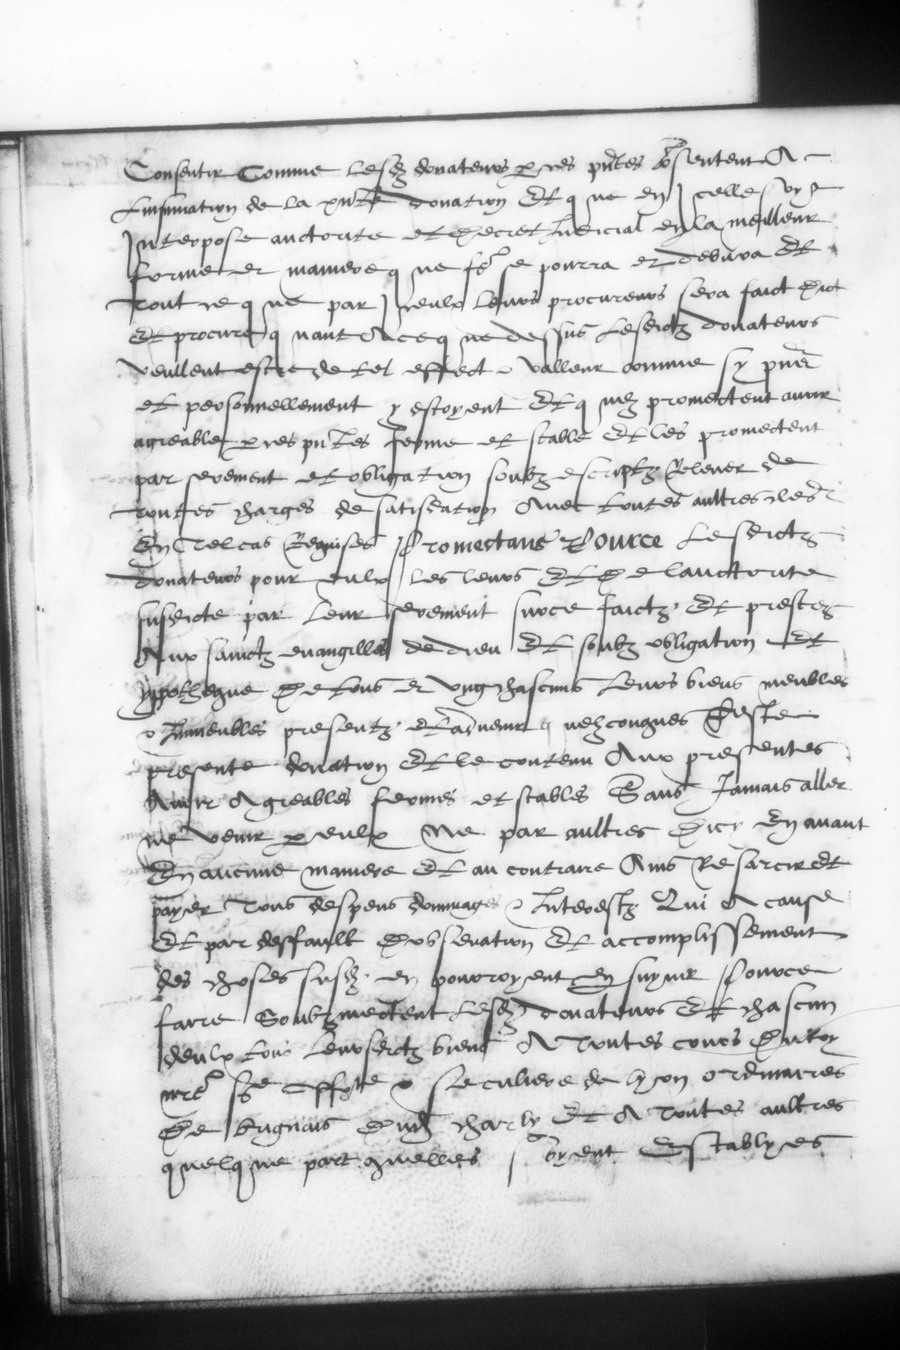 Consentir Comme lesdz donateurs p ces pntes consentent A
Linsinuation de la pnte donation Et que en Icelle soyt
Interpose auctorite et decret Judicial en la meilleur
forme et maniere que fe se pourra et debvra Et
tout ce que par Iceulx leurs procureurs sera faict dict
Et procure quant A ce que dessus Lesdictz donateurs
veullent estre de tel effect & valleur comme sy pns
et personnellement y estoyent Et quilz promectent avoir
agreable p ces pntes ferme et stable Et les promectent
par serement et obligation soubz escriptz Relever de
toutes charges de satisdation Avec toutes aultres
En tel cas Requises Promectans Pource Lesdictz
donateurs pour eulx les leurs Et De lauctorite
susdicte par leur serement surce faictz Et prestez
Aux sainctz evangilles de dieu Et soubz obligation Et
ypotheque De tous et ung chascuns leurs biens meubles
& Immeubles presentz et advenir quelzconques Ceste
presente donation Et le contenu Aux presentes
Avoir Agreables fermes et stables Sans Jamais aller
ne venir p eulx Ne par aultres Dicy En avant
En aucune maniere Et au contraire Ains Resarcir et
payer tous despens dommages & Interestz Qui A cause
Et par deffault Dobservation Et accomplissement
des choses susd en pourroyent En suyvir Pource
faire Soubzmectent Lesdz donateurs Et chascun
deulx tous leursdictz biens A toutes cours Du Roy
nre Sr & seculiere de Lyon ordinaires
De Dud charly Et A toutes aultres
quelque part quelles soyent Establyes